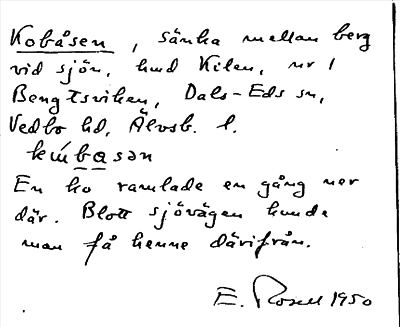 Kobåsen, sänka mellan berg
vid sjön, hmd Kilen, nr 1
Bengtsviken, Dals-Eds sn,
Vedbo hd, Älvsb. l.
kẃbasən
En ko ramlade en gång ner
där. Blott sjövägen kunde
man få henne därifrån.
E. Rosell 1950